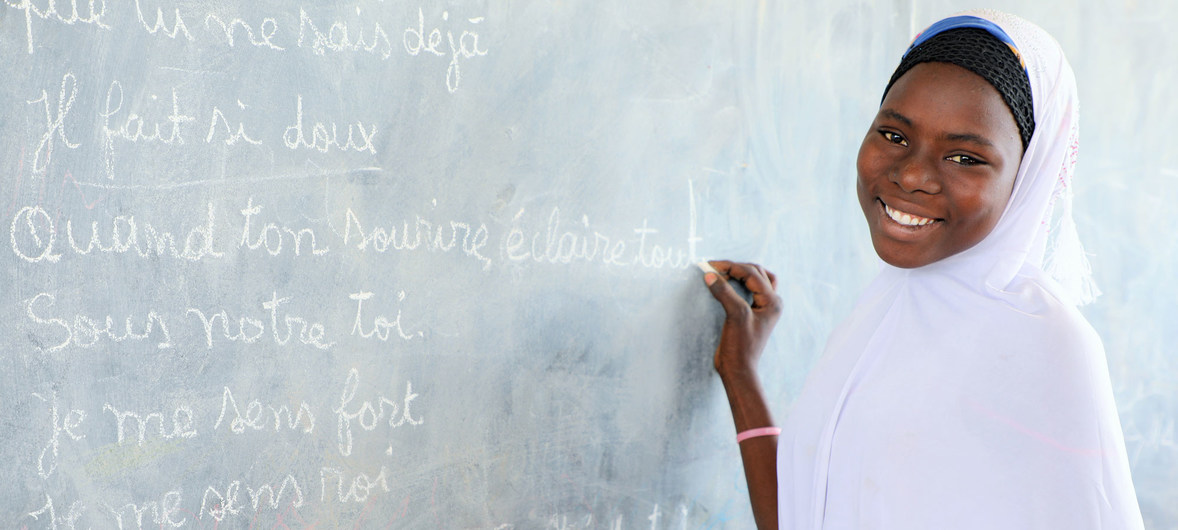 que tu ne sais déjà
Il fait si doux
Quand ton sourire, éclaire tout
Sous notre toi.
Je me sens fort
Je me sens roi